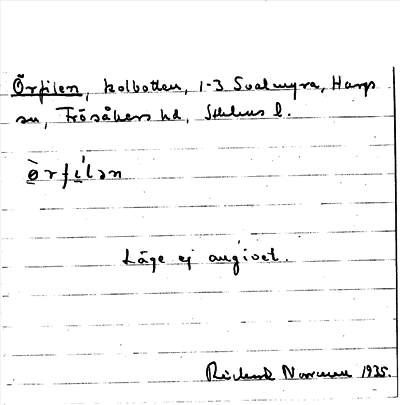 Örfilen, kolbotten, 1-3 Svalmyra, Hargs
sn, Frösåkers hd, Sthlms l.
ò̱rfi̱lən
Läge ej angivet.
Rickard Norrman 1935.